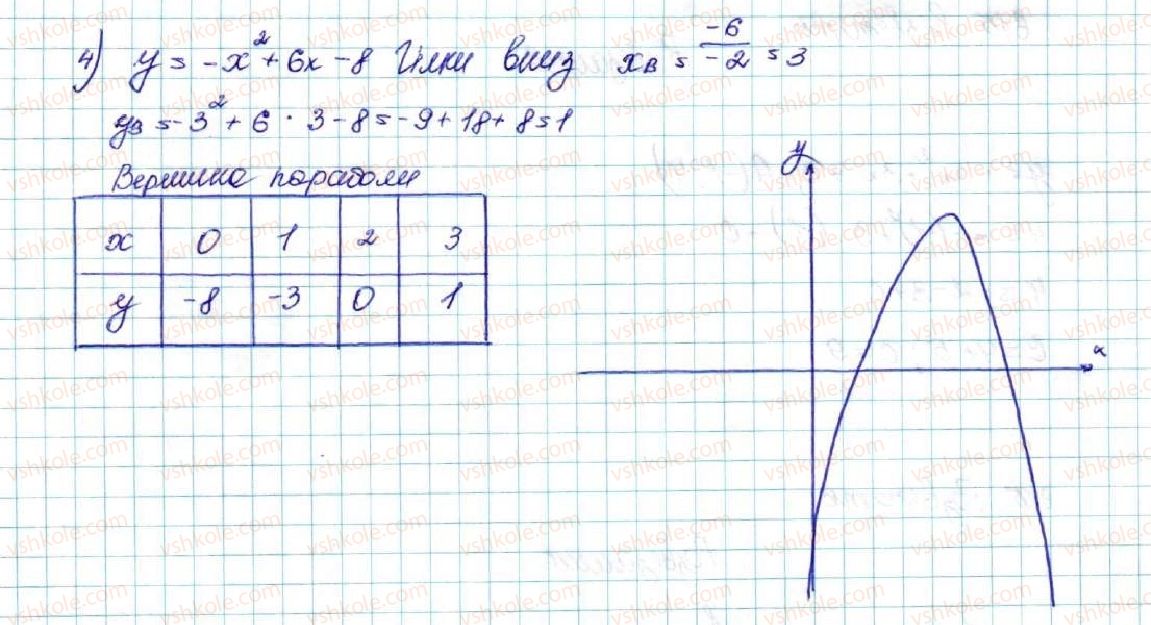 4) y = -x² + 6x - 8 Гілки вниз xв = -6/-2 = 3
yв = -3² + 6 · 3 - 8 = -9 + 18 + 8 = 1
Вершина параболи
x 0 1 2 3
y -8 -3 0 1
y
x
vshkole.com